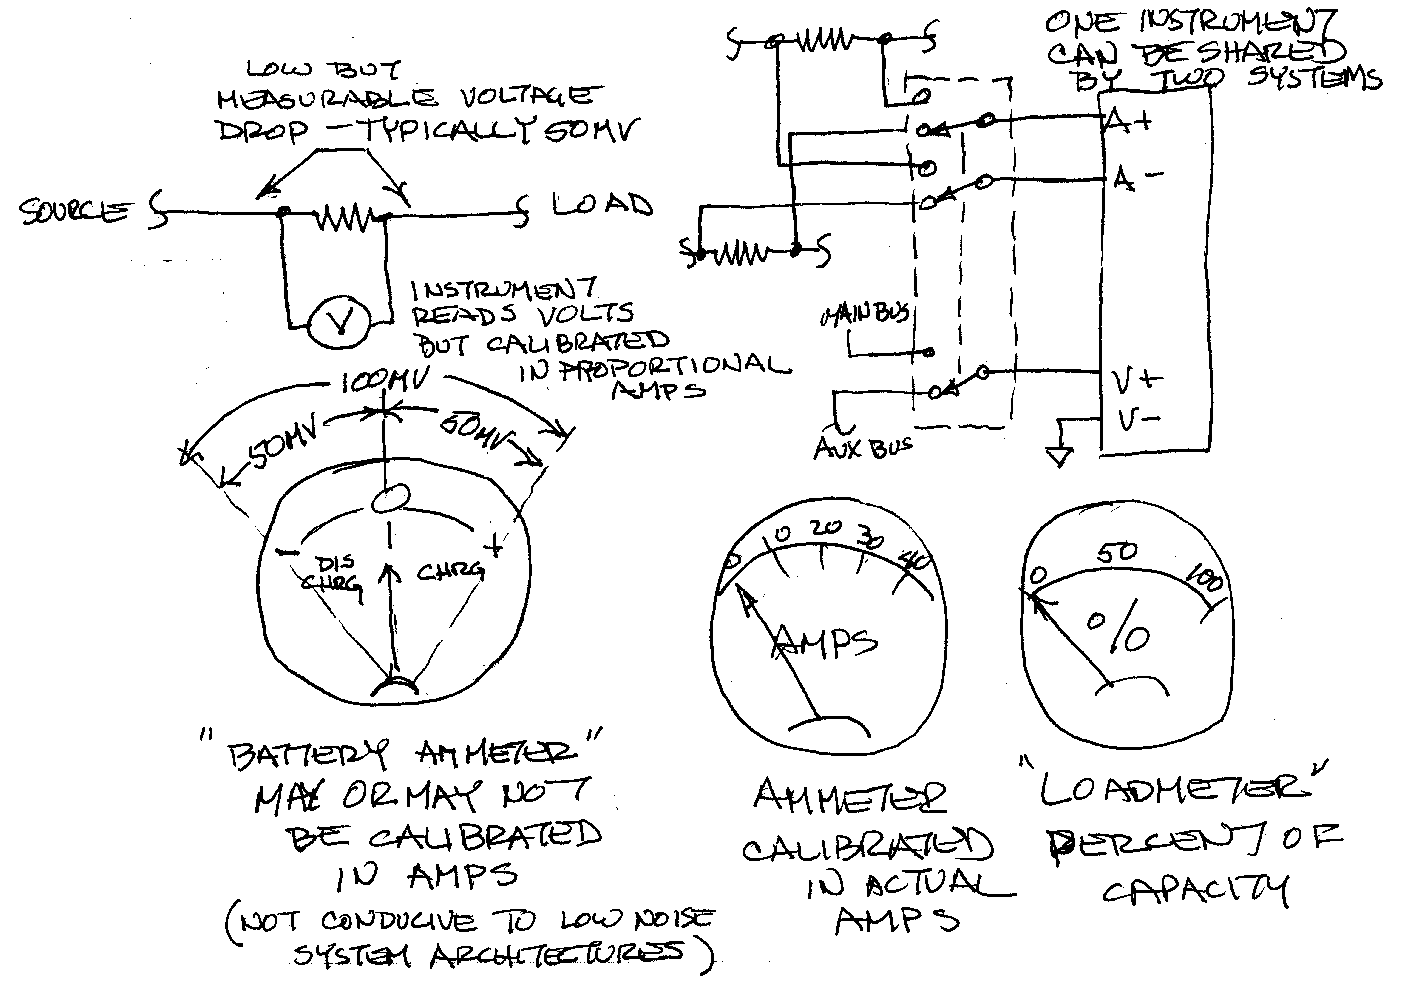 LOW BUT
MEASURABLE VOLTAGE
DROP - TYPICALLY 50MV
SOURCE
LOAD
V
INSTRUMENT
READS VOLTS
BUT CALIBRATED
IN PROPORTIONAL
AMPS
ONE INSTRUMENT
CAN BE SHARED
BY TWO SYSTEMS
A+
A-
MAIN BUS
AUX BUS
V+
V-
100MV
50MV
50MV
-
+
DIS
CHRG
CHRG
"BATTERY AMMETER"
MAY OR MAY NOT
BE CALIBRATED
IN AMPS
(NOT CONDUCIVE TO LOW NOISE
SYSTEM ARCHITECTURES)
0 10 20 30 40
AMPS
AMMETER
CALIBRATED
IN ACTUAL
AMPS
0 50 100
%
"LOADMETER"
PERCENT OF
CAPACITY